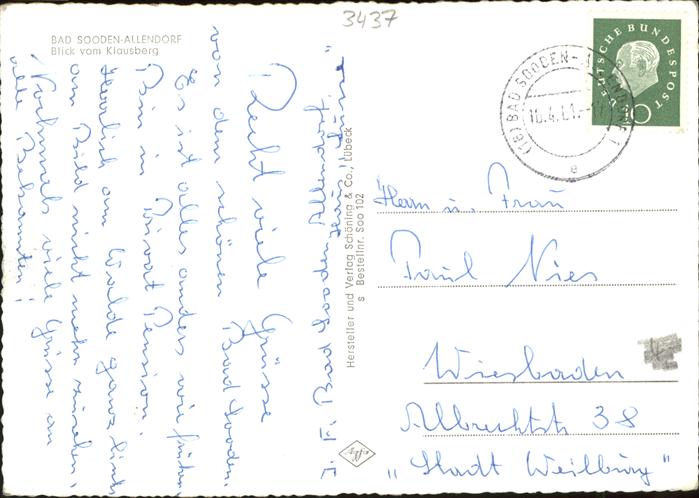 3437
BAD SOODEN-ALLENDORF
Blick vom Klausberg
Recht viele Grüsse
von dem schönen Bad Sooden.
Es ist alles anders wie früher
Bin in Privat Pension.
Herrlich am Walde ganz links
am Bild nicht mehr zu sehen.
Nochmals viele Grüsse an
alle Bekannten!
Bad Sooden Allendorf
Hersteller und Verlag Schöning & Co., Lübeck
s Bestellnr. Soo 102
DEUTSCHE BUNDESPOST
10
(16) BAD SOODEN-ALLENDORF 1
10.4.61.
e
Herrn u. Frau
Paul Nies
Wiesbaden
Albrechtstr 38
„Stadt Weilburg"